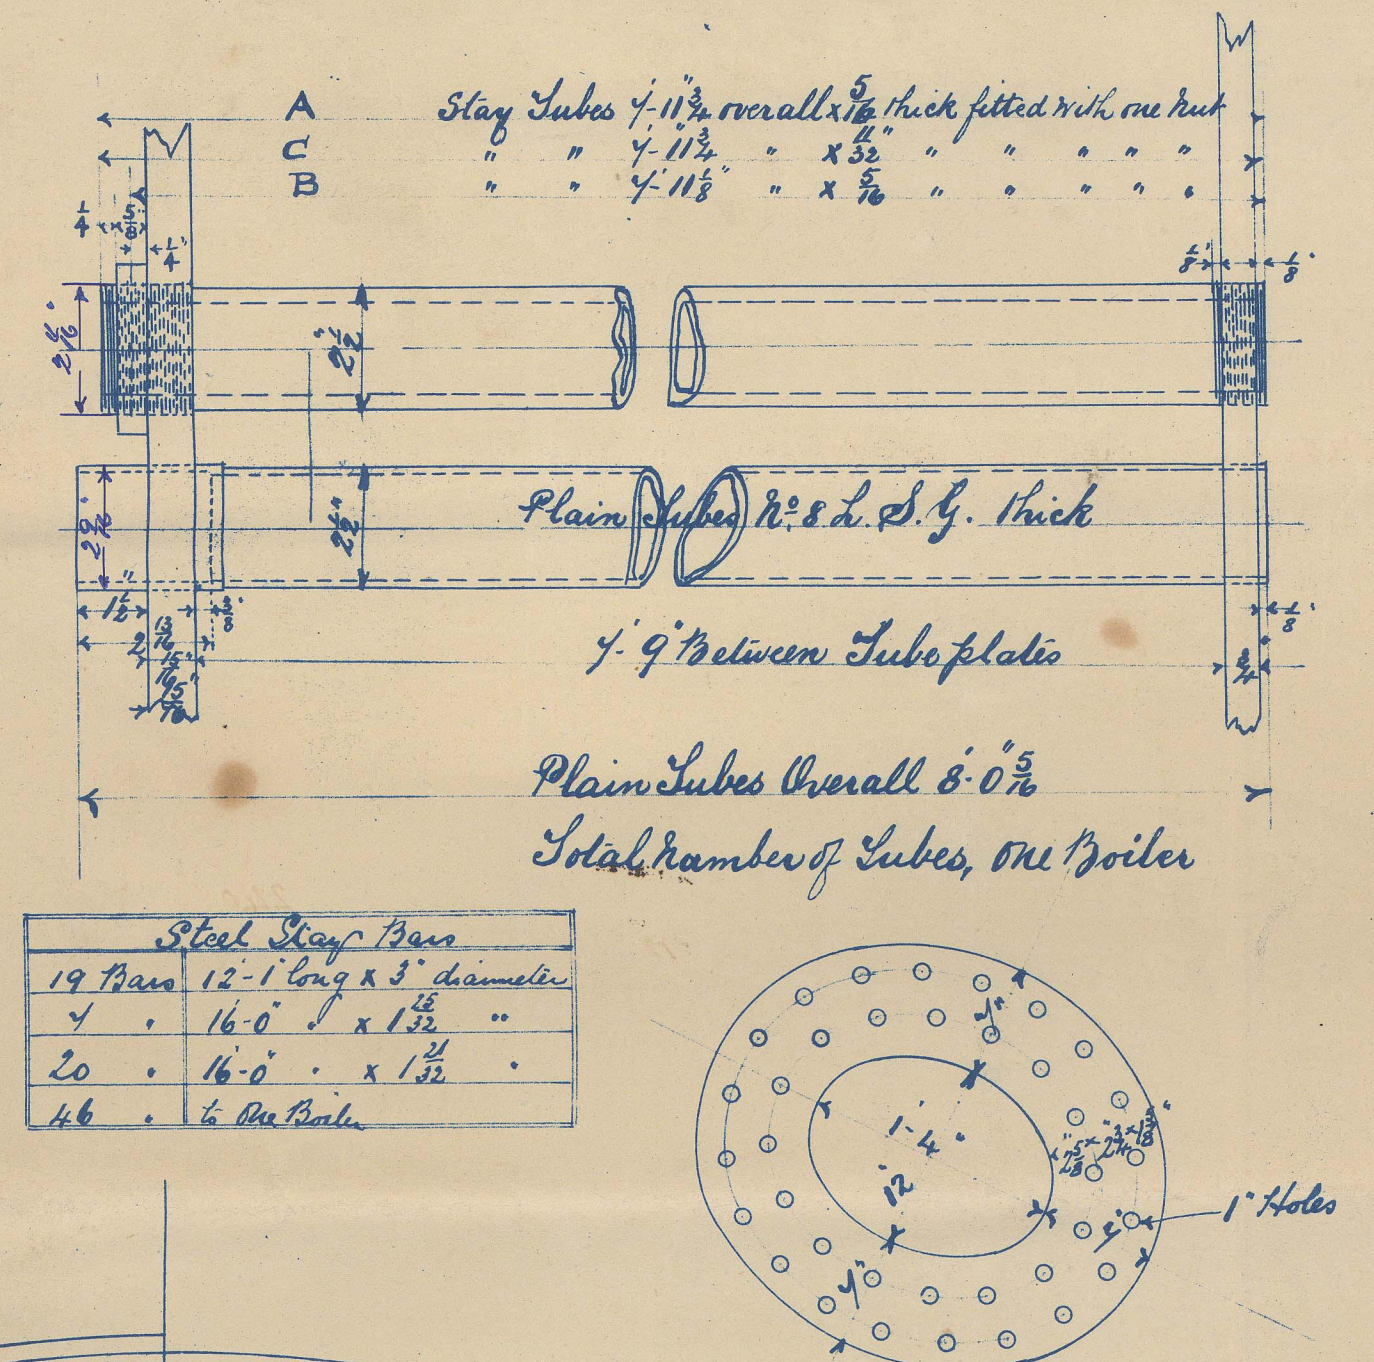 A Stay Tubes 7'-11 3/4" overall x 5/16 thick fitted with one nut
C " " 7'-11 3/4" " x 11/32" " " " " "
B " " 7'-11 1/8" " x 5/16 " " " " "
1/4 x 5/8"
1/4"
1/8" 1/8"
2 1/2"
2 9/16" 2 1/2"
Plain Tubes No. 8 L. S. G. thick
1 1/2" 3/8" 1/8"
2 13/16
7'-9" Between Tube plates 3/4
15/16"
15/16
Plain Tubes Overall 8'-0" 5/16
Total number of Tubes, One Boiler
Steel Stay Bars
19 Bars 12'-1" long x 3" diameter
7 " 16'-0" " x 1 25/32 "
20 " 16'-0" " x 1 21/32 "
46 " to One Boiler
7"
1'-4"
12"
2 5/8" x 2 3/4" x 1 5/8"
7"
1" Holes
7"